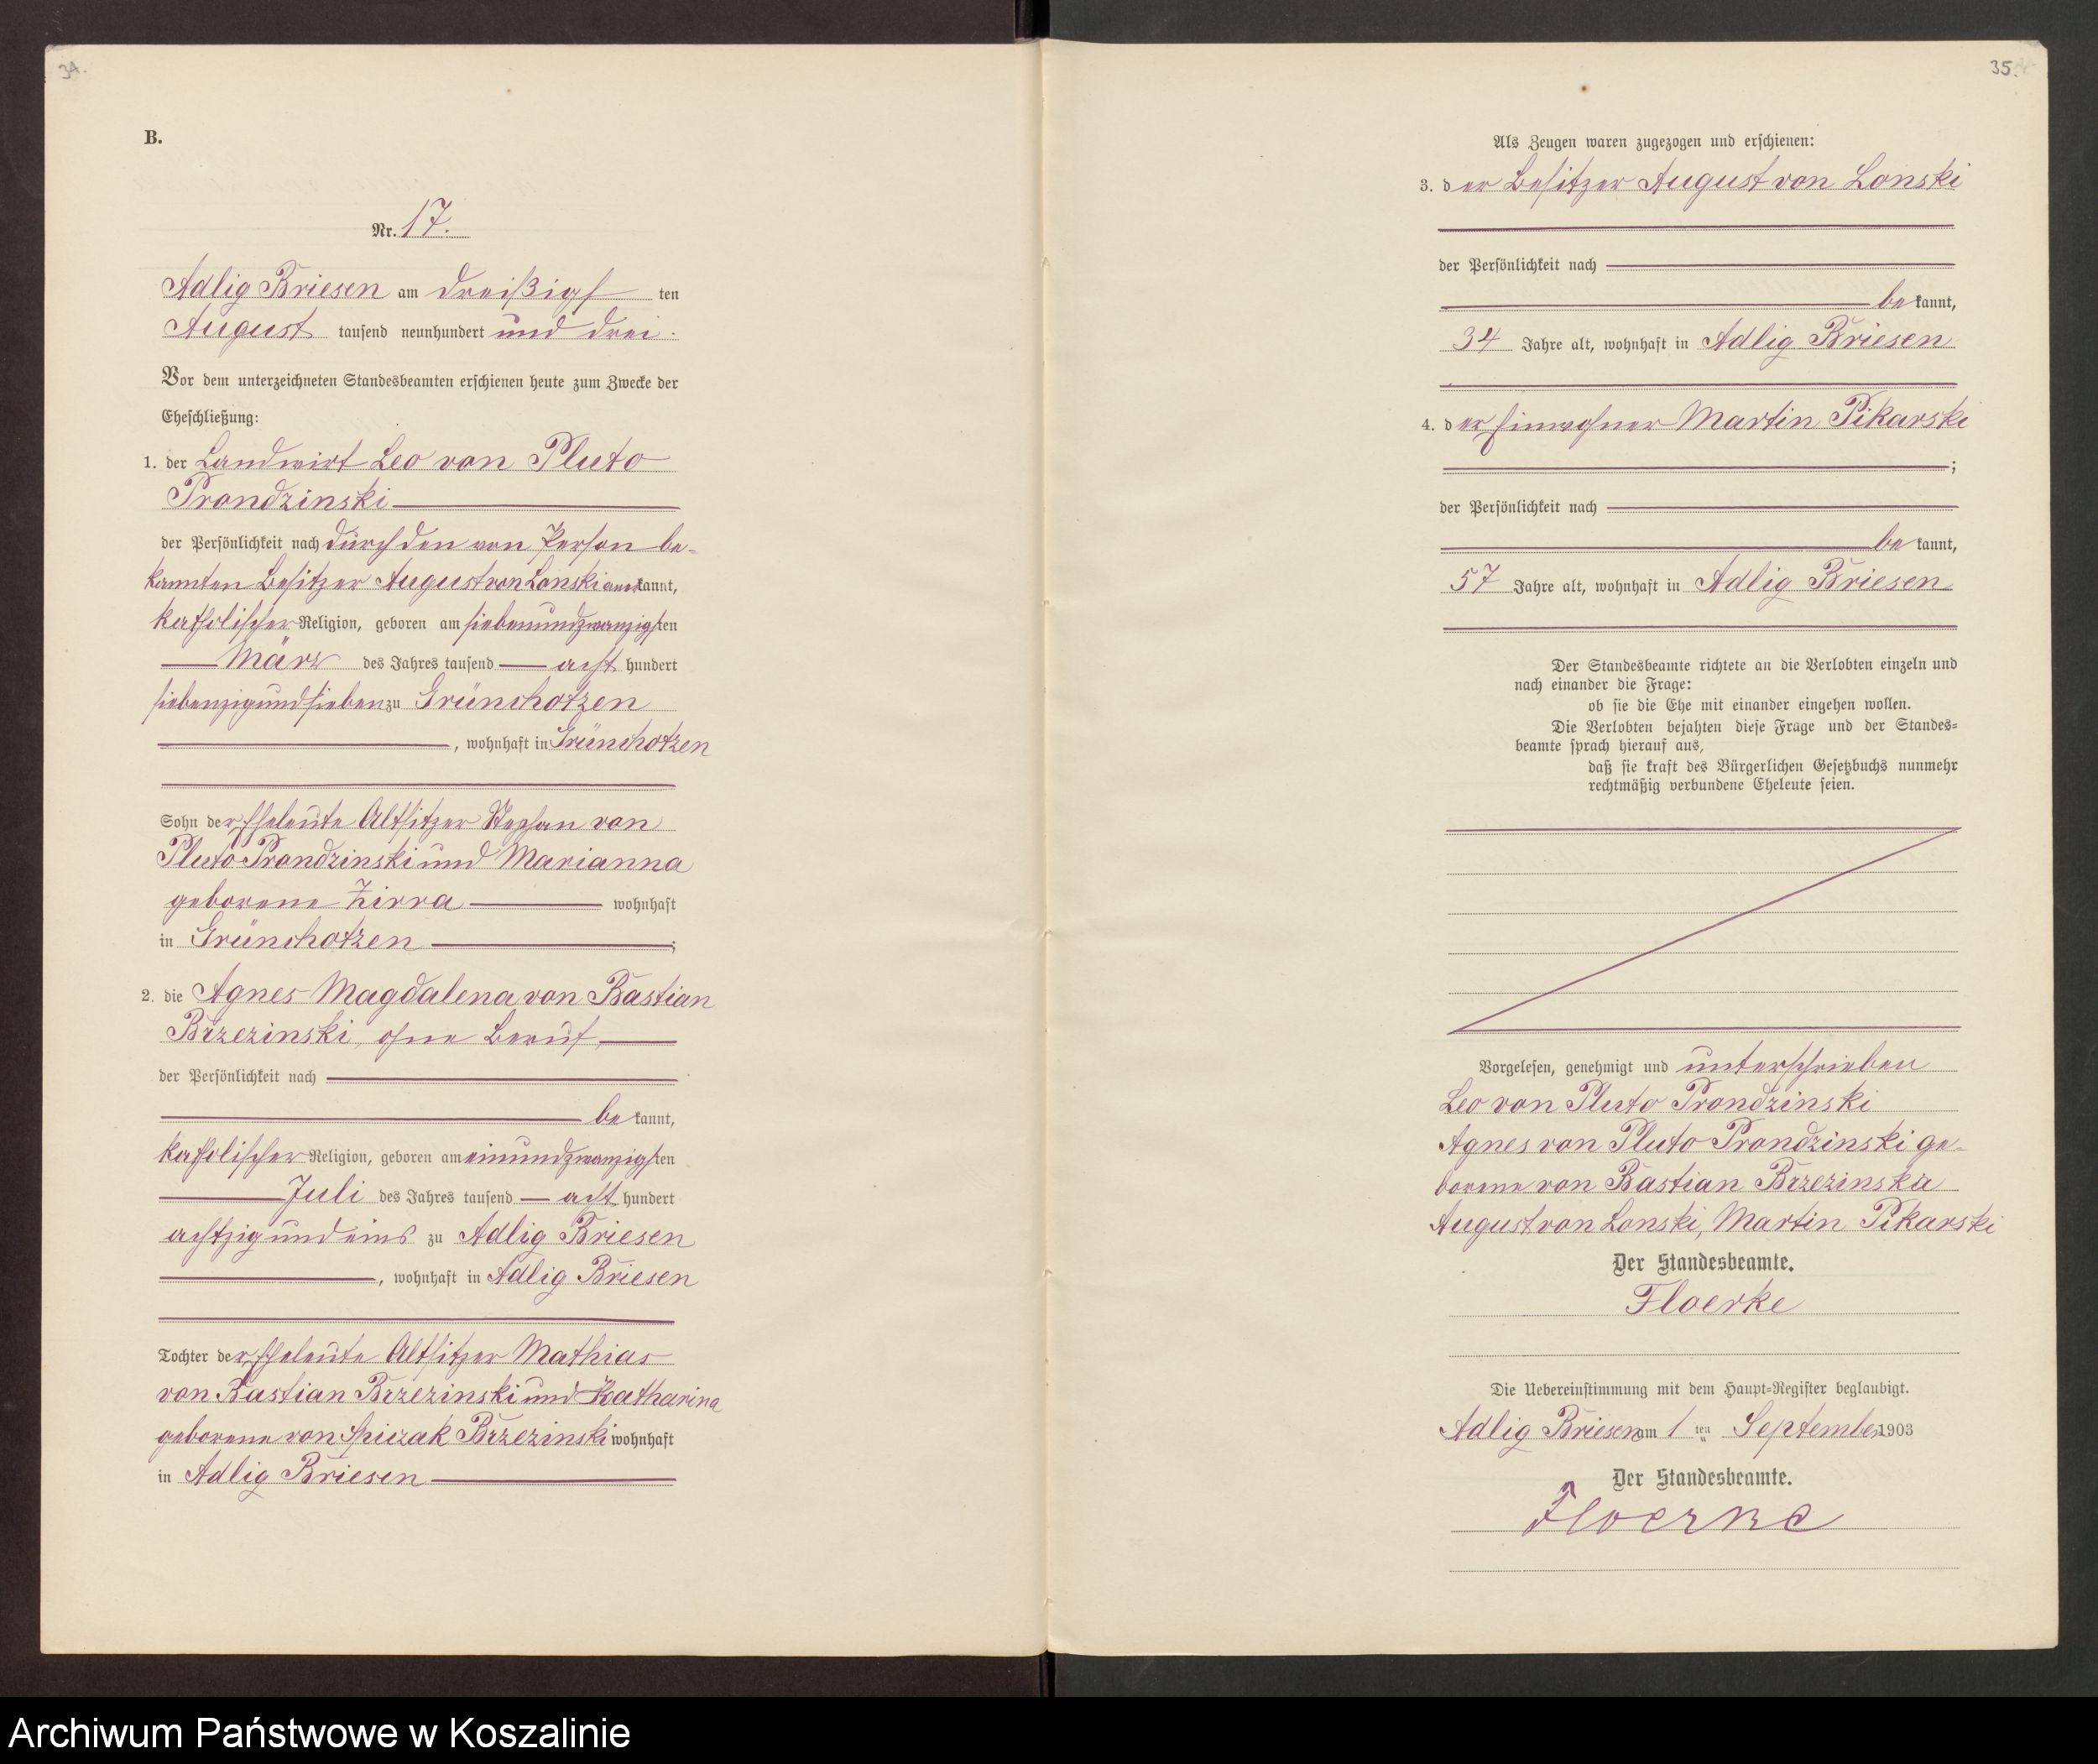 34.
B.
Nr. 17.
Adlig Briesen am dreißigsten
August tausend neunhundert und drei.
Vor dem unterzeichneten Standesbeamten erschienen heute zum Zwecke der
Eheschließung:
1. der Landwirt Leo von Pluto
Prondzinski
der Persönlichkeit nach durch den von Person be-
kannten Besitzer August von Lonski anerkannt,
katholischer Religion, geboren am siebenundzwanzigsten
März des Jahres tausend acht hundert
siebenzig und sieben zu Grünchotzen
, wohnhaft in Grünchotzen
Sohn der Eheleute Altsitzer Stephan von
Pluto Prondzinski und Marianna
geborene Zirra wohnhaft
in Grünchotzen ;
2. die Agnes Magdalena von Bastian
Brzezinski, ohne Beruf,
der Persönlichkeit nach
bekannt,
katholischer Religion, geboren am einundzwanzigsten
Juli des Jahres tausend acht hundert
achtzig und eins zu Adlig Briesen
, wohnhaft in Adlig Briesen
Tochter der Eheleute Altsitzer Mathias
von Bastian Brzezinski und Katharina
geborene von Spiczak Brzezinski wohnhaft
in Adlig Briesen
35.
Als Zeugen waren zugezogen und erschienen:
3. der Besitzer August von Lonski
der Persönlichkeit nach
bekannt,
34 Jahre alt, wohnhaft in Adlig Briesen
4. der Einwohner Martin Pikarski
;
der Persönlichkeit nach
bekannt,
57 Jahre alt, wohnhaft in Adlig Briesen
Der Standesbeamte richtete an die Verlobten einzeln und
nach einander die Frage:
ob sie die Ehe mit einander eingehen wollen.
Die Verlobten bejahten diese Frage und der Standes-
beamte sprach hierauf aus,
daß sie kraft des Bürgerlichen Gesetzbuchs nunmehr
rechtmäßig verbundene Eheleute seien.
Vorgelesen, genehmigt und unterschrieben
Leo von Pluto Prondzinski
Agnes von Pluto Prondzinski ge-
borene von Bastian Brzezinska
August von Lonski, Martin Pikarski
Der Standesbeamte.
Floerke
Die Uebereinstimmung mit dem Haupt-Register beglaubigt.
Adlig Briesen am 1 ten September 1903
Der Standesbeamte.
Floerke
Archiwum Państwowe w Koszalinie